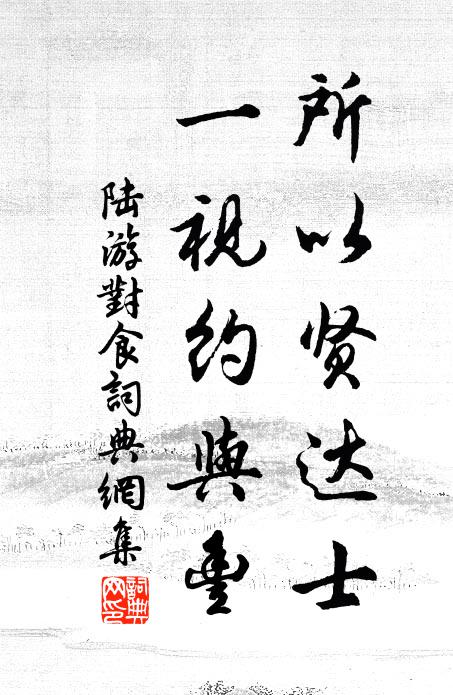 所以贤达士
一视约與豐
陸游對食詞典網集
詞典
网印